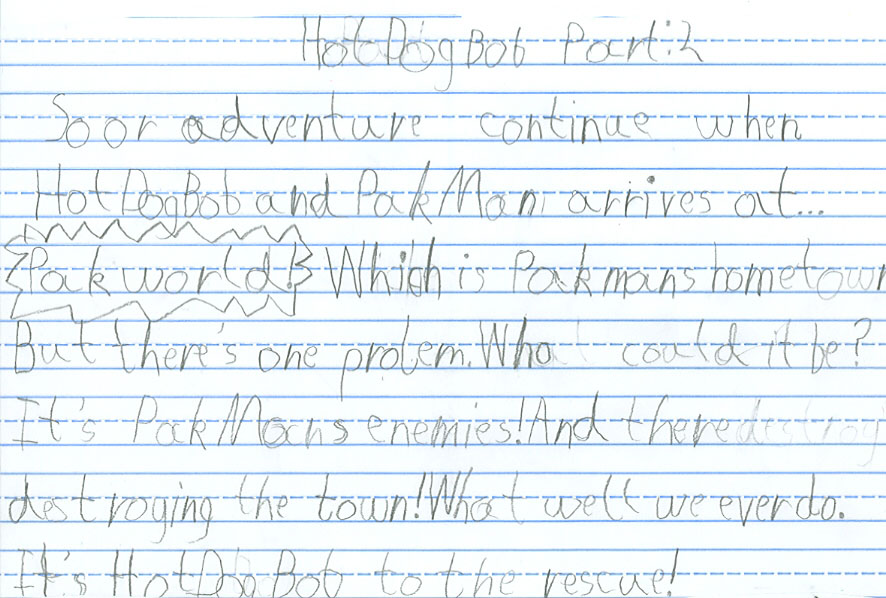 HotDogBob Part:2
So or adventure continue when
HotDogBob and PakMan arrives at...
Pakworld! Which is Pakmans hometown
But there's one problem. What could it be?
It's PakMans enemies! And there destroy
destroging the town! What well we ever do.
It's HotDogBob to the rescue!